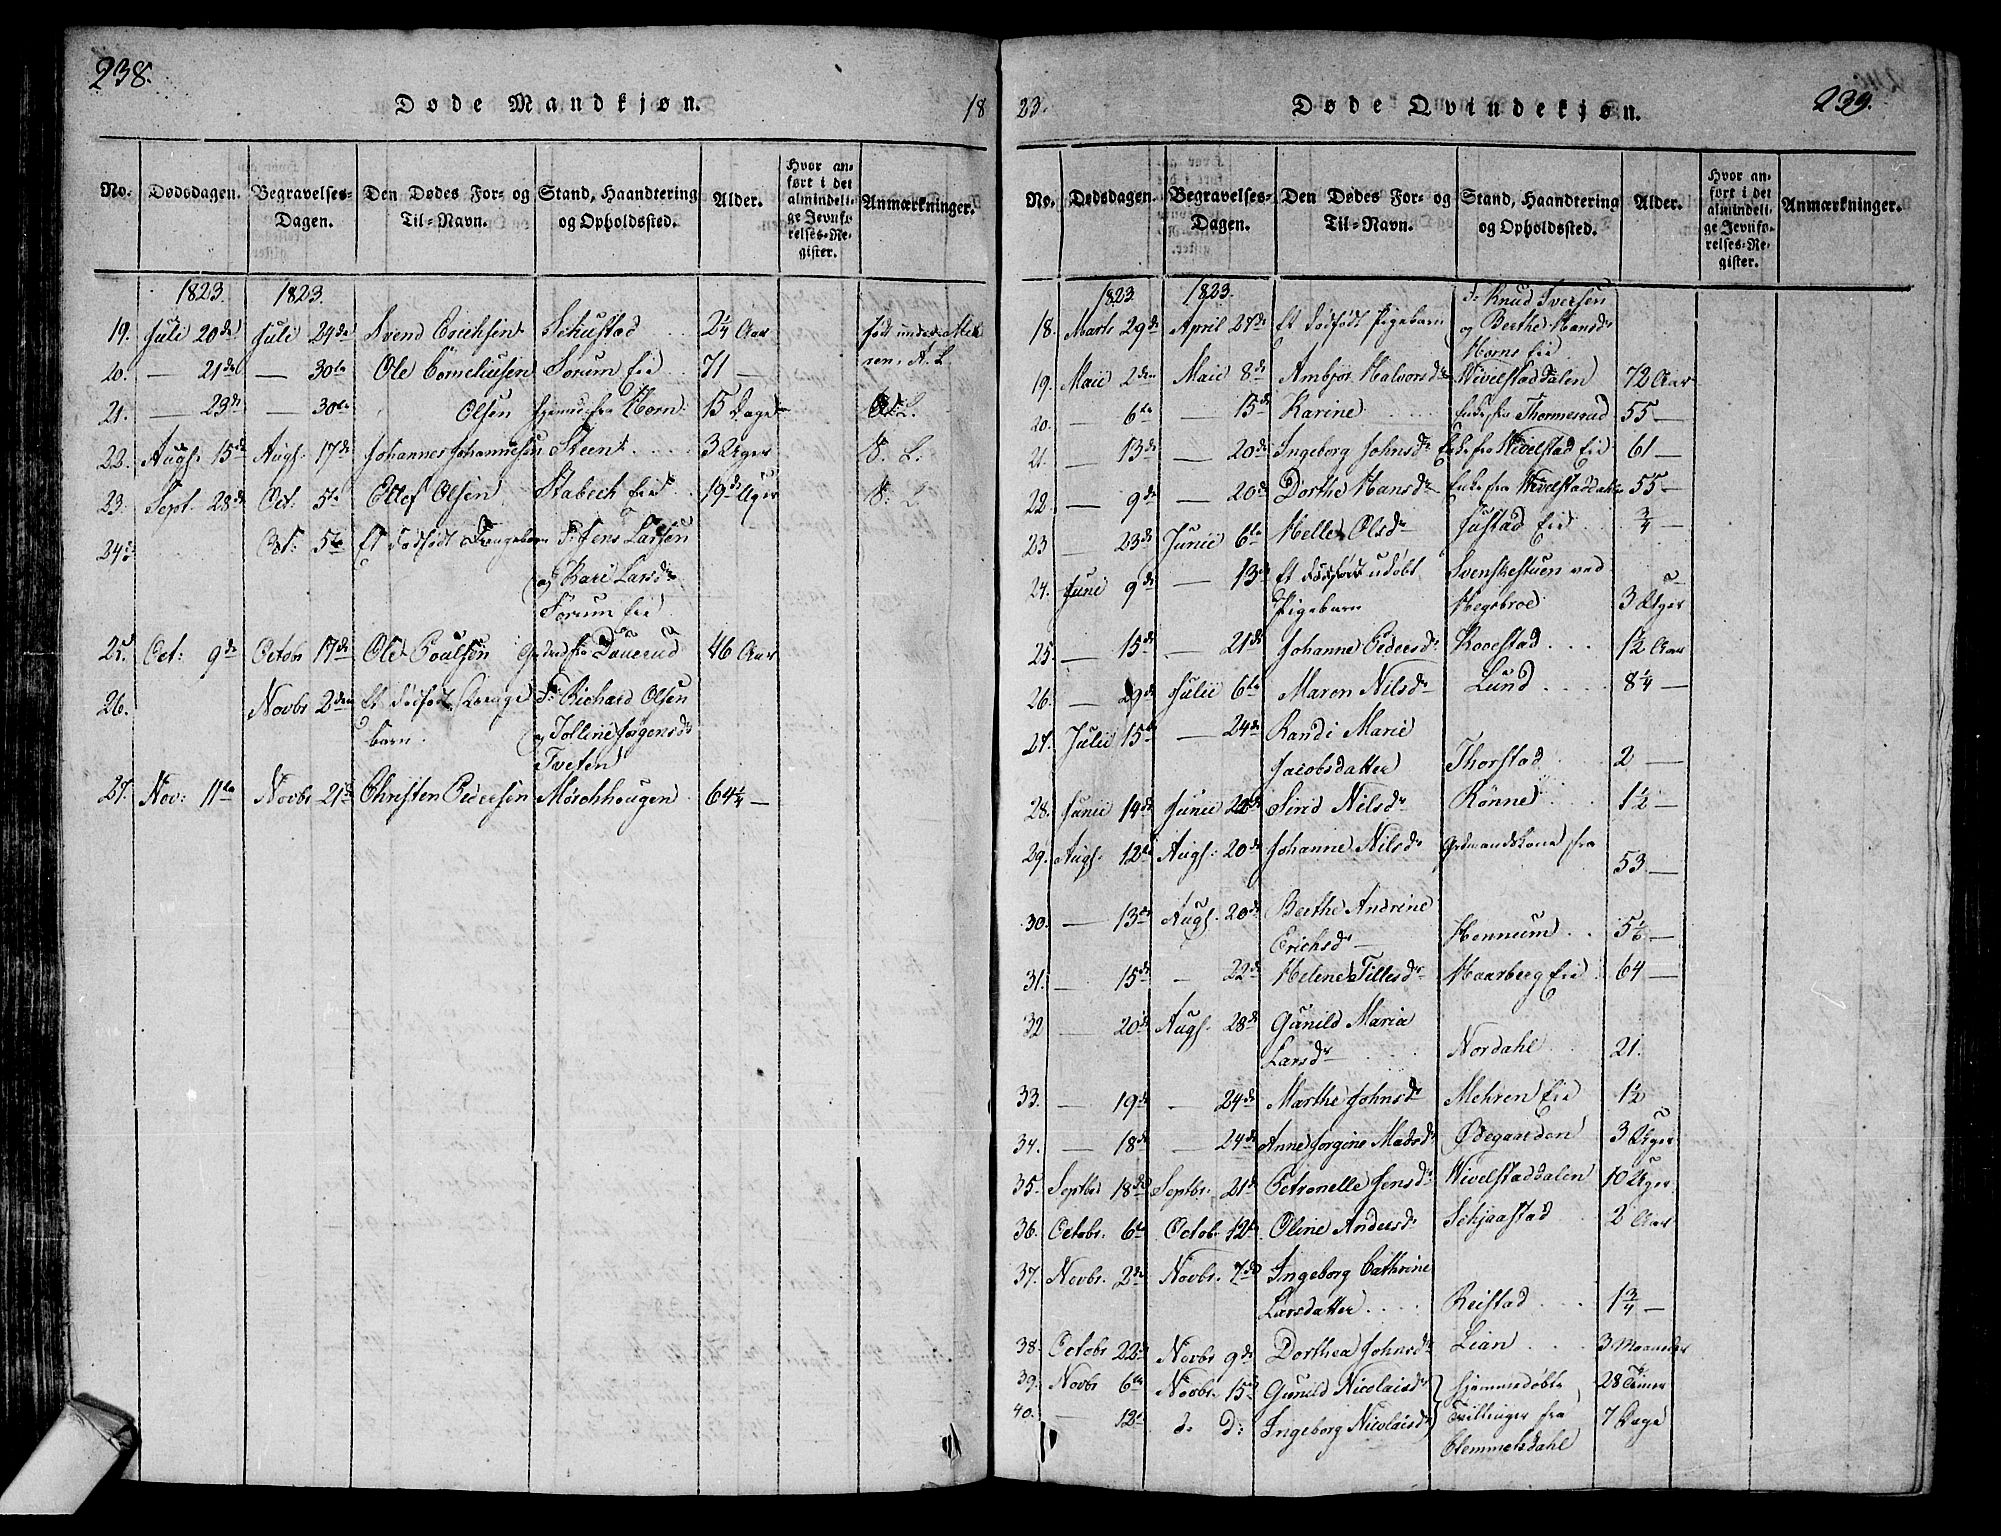 238.
Døde Mandkjøn.
18
No. Dødsdagen. Begravelses-Dagen. Den Dødes For- og Til-Navn. Stand, Haandtering og Opholdssted. Alder. Hvor anført i det almindelige Jevnførelses-Register. Anmærkninger.
1823. 1823.
19. Julii 20de Julii 24de Svend Erichsen 2¼ Aar
20. — 21de — 30te Ole Cornelissen Sorum Eie 71 —
21. — 23de — 30te Olsen fra Horn 15 Dage
22. Augs. 15de Augs. 17de Johannes Johannesen Steen 3 Uger
23. Sept. 28de Oct. 5te Ellef Olsen Stabech Eie 19 Uger
24. Oct. 5te Et dødfødt Drengebarn F: Jens Larsen
og Kari Larsdr
Sorum Eie
25. Oct: 9de Octobr 17de Ole Poulsen 46 Aar
26. Novbr 2den Et dødfødt Drengebarn F: Richard Olsen
og Jolline Jørgensdr
Tveten
27. Nov: 11te Novbr 21de Christen Pedersen Mørchhougen 64¼ —
23.
Døde Qvindekjøn.
239.
No. Dødsdagen. Begravelses-Dagen. Den Dødes For- og Til-Navn. Stand, Haandtering og Opholdssted. Alder. Hvor anført i det almindelige Jevnførelses-Register. Anmærkninger.
1823 1823.
18. Marts 29de April 27de Et dødfødt Pigebarn F: Knud Iversen
og Berthe Hansdr
Horns Eie
19. Maii 2den Maii 8de Ambjør Halvorsdr Wivelstaddalen 72 Aar
20. — 6te — 15de Karine Enke fra Thormesrud 55 —
21. — 13de — 20de Ingeborg Johnsdr Enke fra Wivelstad Eie 61 —
22. — 9de — 20de Dorthe Hansdr Enke fra Wivelstaddalen 55 —
23 — 23de Junii 6te Helle Olsdr Justad Eie ¾
24. Junii 9de — 13de Et udøbt
Pigebarn Svenskestuen ved
Hegsbroe 3 Uger
25. — 15de — 21de Johanne Pedersdr 1½ Aar
26. — 29de Julii 6te Maren Nilsdr Lund 8¼ —
27. Julii 15de — 24de Randi Marie
Jacobsdatter Thorstad 2 —
28. Junii 14de Junii 22de Siri Nilsdr Rønne 1½ —
29. Augs. 12te Augs: 20de Johanne Nilsdr Grdmandskone fra 53 —
30. — 13de Augs. 20de Berthe Andrine
Erichsdr — Hennum 5⅙ —
31. — 15de — 22de Helene Tillesdr Haarberg Eie 64 —
32 — 20de Augs. 28de Gunild Maria
Larsdr Nordahl 21.
33. — 19de — 24de Marthe Johnsdr Mehren Eie 1½
34. — 18de — 24de Anne Jorgine Madsdr Ødegaarden 3 Uger
35. Septbr 18de Septbr. 21de Petronelle Jensdr Wivelstaddalen 10 Uger
36. Octobr. 6te Octobr 12te Oline Andersdr Schjaastad 2 Aar
37. Novbr. 2den Novbr. 7de Ingeborg Cathrine
Larsdatter Reistad 1¾ —
38. Octobr 22de Novbr 9de Dorthea Johnsdr Lian 3 Maaneder
39. Novbr 6te Novbr. 15de Gunild Nicolaisdr } hjemmedøbte 28 Timer
40. — 12te d. D: Ingeborg Nicolaisdr } Tvillinger fra 7 Dage
Clemmetsdahl